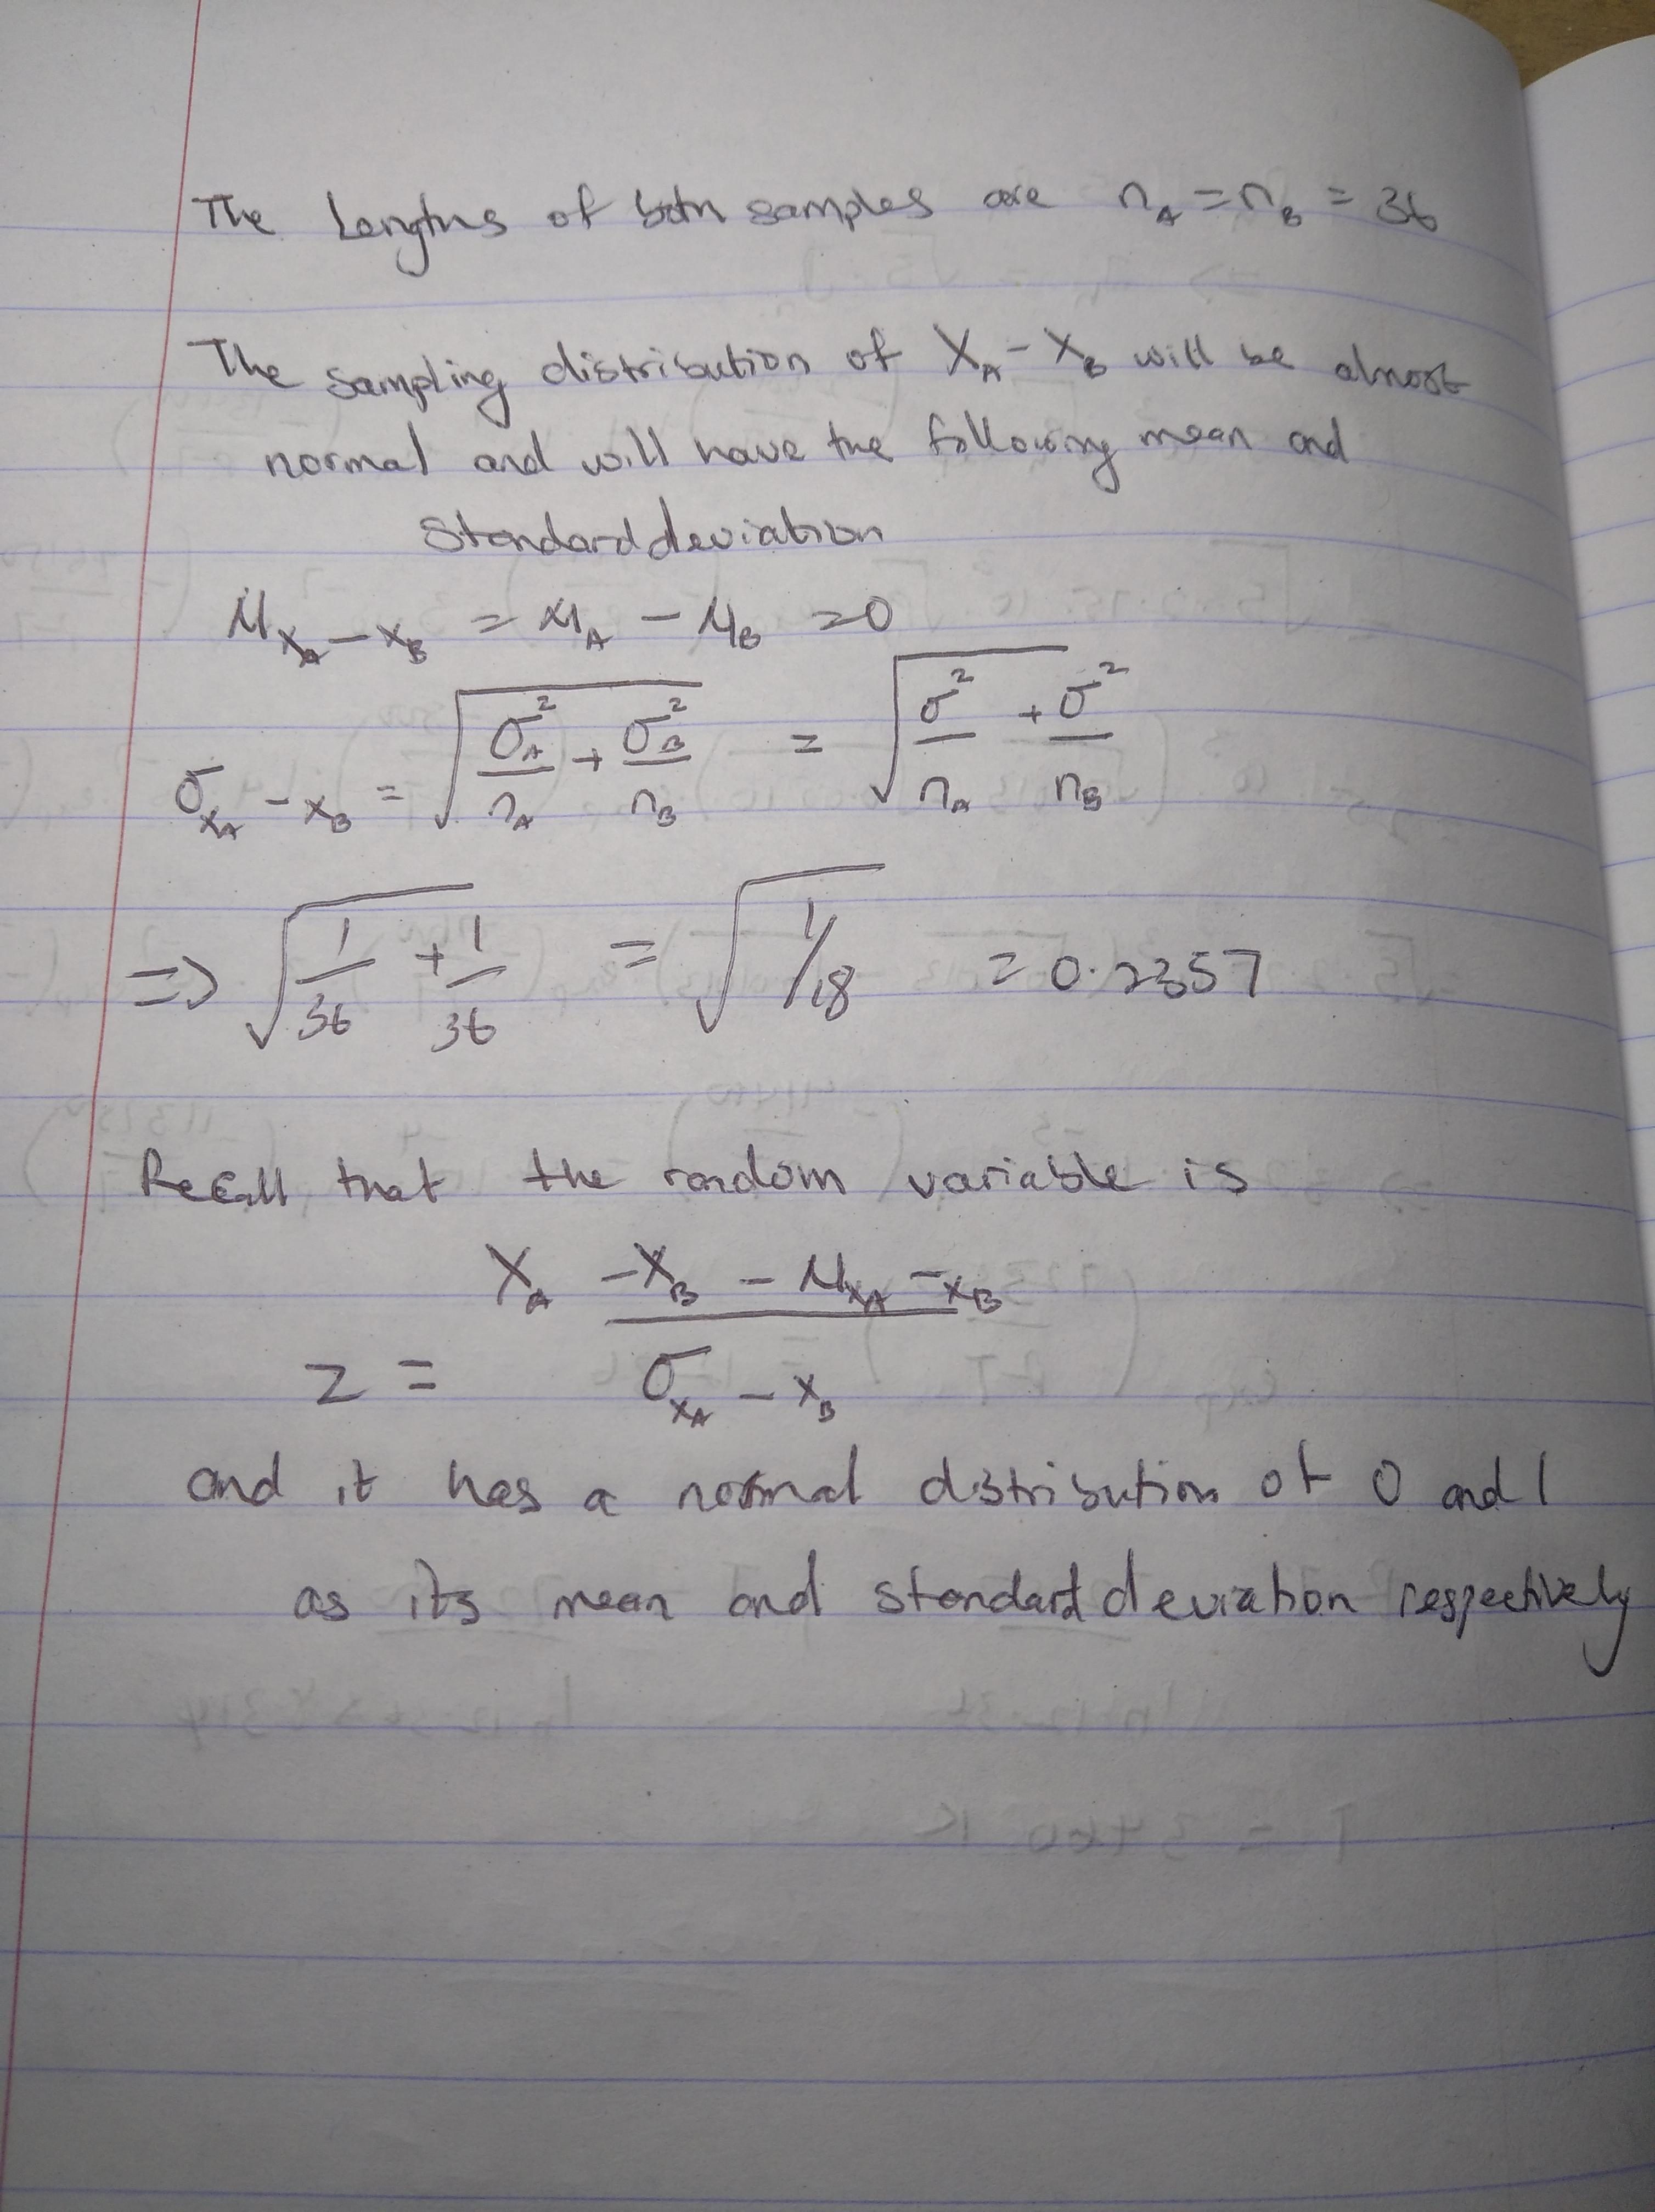 The Lengths of both samples are n_A = n_B = 36
The sampling distribution of X_A - X_B will be almost
normal and will have the following mean and
standard deviation
μ_X_A - X_B = μ_A - μ_B = 0
σ_X_A - X_B = √(σ_A²/n_A + σ_B²/n_B) = √(σ²/n_A + σ²/n_B)
=> √(1/36 + 1/36) = √(1/18) = 0.2357
Recall that the random variable is
X_A - X_B - μ_X_A - X_B
z = σ_X_A - X_B
and it has a normal distribution of 0 and 1
as its mean and standard deviation respectively